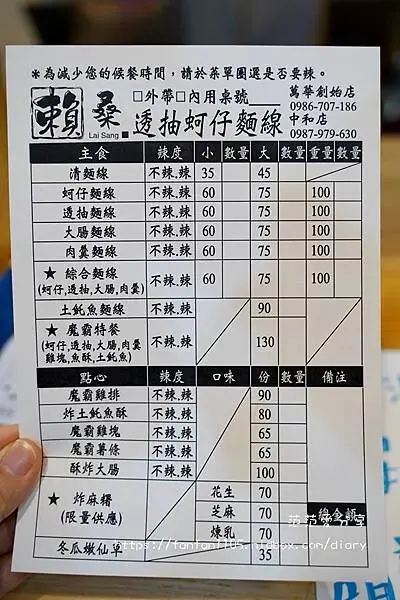 ＊為減少您的候餐時間，請於菜單圈選是否要辣。
賴桑
Lai Sang
□外帶□內用桌號____
透抽蚵仔麵線
萬華創始店
0986-707-186
中和店
0987-979-630
主食 辣度 小 數量 大 數量 重量 數量
清麵線 不辣.辣 35 45
蚵仔麵線 不辣.辣 60 75 100
透抽麵線 不辣.辣 60 75 100
大腸麵線 不辣.辣 60 75 100
肉羹麵線 不辣.辣 60 75 100
★ 綜合麵線 不辣.辣 60 75 100
(蚵仔,透抽,大腸,肉羹)
土魠魚麵線 不辣.辣 90
★ 魔霸特餐 不辣.辣 130
(蚵仔,透抽,大腸,肉羹
雞塊,魚酥,土魠魚)
點心 辣度 口味 份 數量 備注
魔霸雞排 不辣.辣 90
炸土魠魚酥 不辣.辣 80
魔霸雞塊 不辣.辣 65
魔霸薯條 不辣.辣 65
酥炸大腸 不辣.辣 100
★ 炸麻糬
(限量供應)
花生 70
芝麻 70 總金額
煉乳 70
冬瓜嫩仙草 35
范范愛分享
https://fanfan1105.nidbox.com/diary